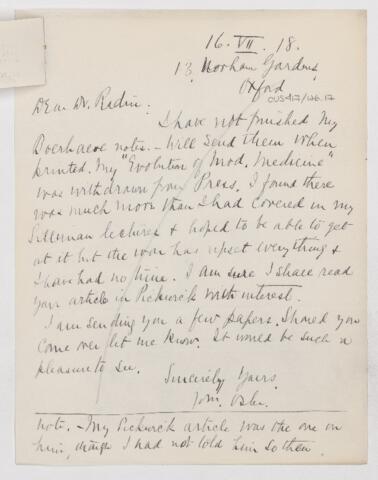 16. VII. 18.
13 Norham Gardens,
Oxford
CUS417/126.17
Dear Dr. Radin.
I have not finished my
Boerhaave notes. - Will send them when
printed. My "Evolution of Mod. Medicine"
was withdrawn from Press. I found there
was much more than I had covered in my
Silliman lectures & hoped to be able to get
at it but the war has upset everything &
I have had no time. I am sure I shall read
your article in Pickwick with interest.
I am sending you a few papers. Should you
come over let me know. It would be such a
pleasure to see.
Sincerely Yours.
Wm. Osler.
note. - My Pickwick article was the one on
him, though I had not told him so then.